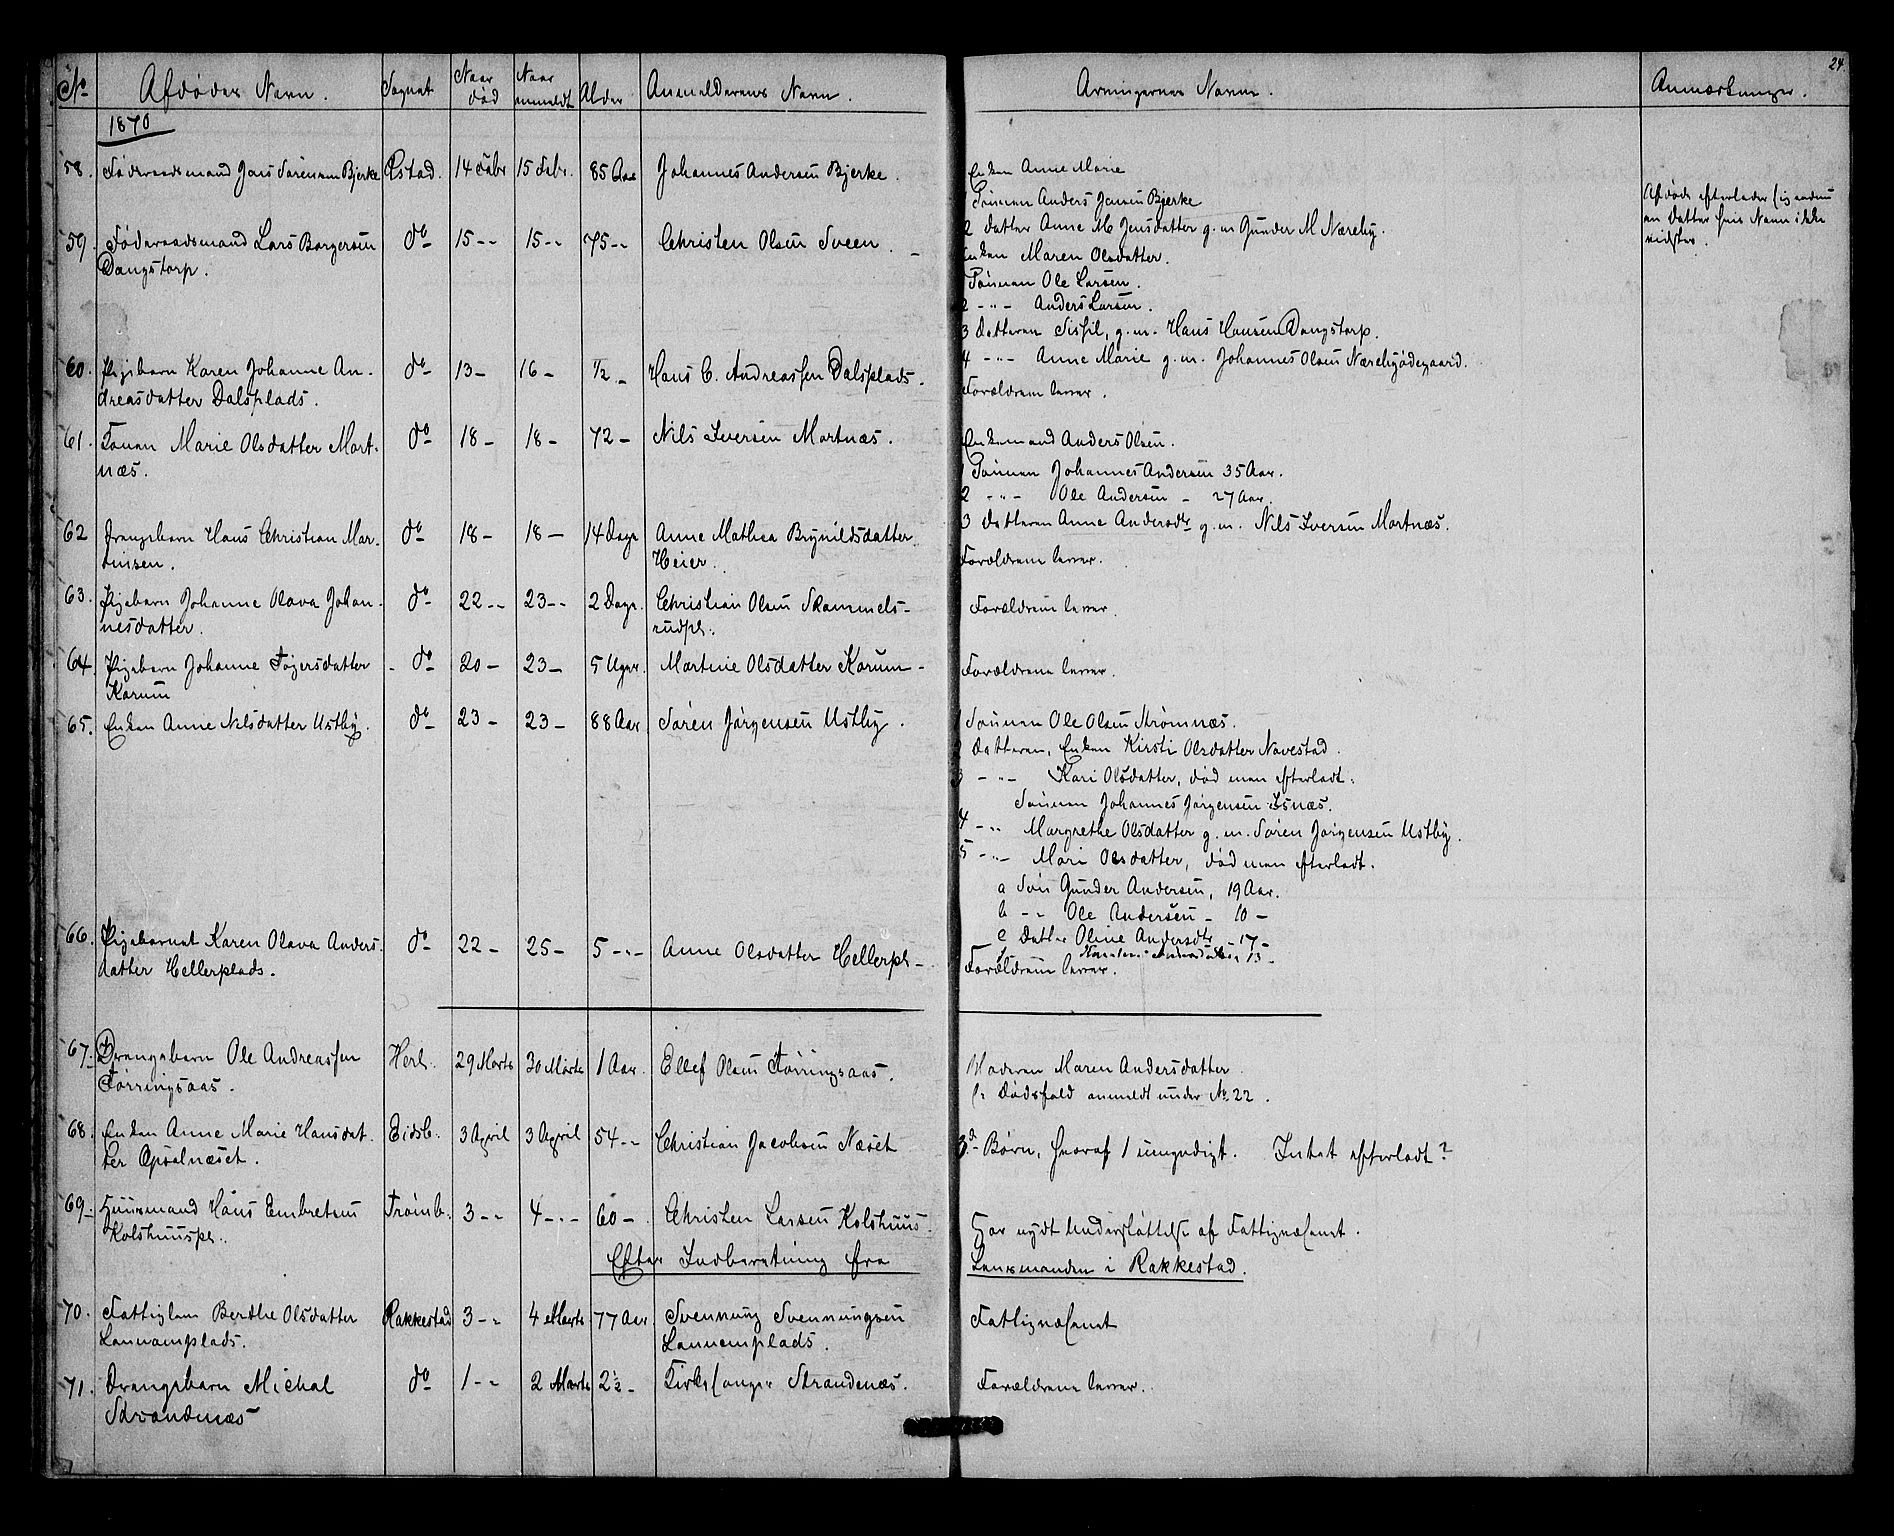 24.
No Afdødes Navn. Sognet Naar død Naar anmeldt Alder Anmelderens Navn. Arvingernes Navne. Anmærkninger.
1870
58. Føderaadsmand Jens Sørensen Bjerke Østad. 14 Febr 15 Febr. 85 Aar Johannes Andersen Bjerke.
Enken Anne Marie
Sønnen Anders Jensen Bjerke
2 Datter Anne M Jensdatter g. m. Gunder M Næreby.
Afdøde efterlader sig endnu
en Datter hvis Navn ikke
vidstes.
59. Føderaadsmand Lars Borgersen do 15 -- 15 -- 75 -- Christen Olsen Sveen.
Dangstorp.
Enken Maren Olsdatter.
Sønnen Ole Larsen.
2 -"- Anders Larsen.
3 Datteren Sissil, g. m. Hans Hansen Dangstorp.
4 -"- Anne Marie g. m. Johannes Olsen Nærebyødegaard.
60. Pigebarn Karen Johanne An- do 13 - 16 - 1/2 - Hans C. Andreassen Dalsplads.
dreasdatter Dalsplads.
Forældrene lever.
61. Konen Marie Olsdatter Mort- do 18 - 18 - 72 - Nils Iversen Mortnæs.
næs.
Enkemand Anders Olsen.
1 Sønnen Johannes Andersen 35 Aar.
2 -"- Ole Andersen - 27 Aar.
3 Datteren Anne Andersdtr g. m. Nils Iversen Mortnæs.
62 Drengebarn Hans Christian Mar- do 18 - 18 - 14 Dage Anne Mathea Brynildsdatter
tinsen. Heier.
Forældrene lever.
63. Pigebarn Johanne Olava Johan- do 22 -- 23 -- 2 Dage. Christian Olsen Skammels-
nesdatter. rudpl.
Forældrene lever.
64. Pigebarn Johanne Tøgersdatter - do 20 - 23 - 5 Uger. Martine Olsdatter Korum -
Korum
Forældrene lever.
65. Enken Anne Nilsdatter Ustby. do 23 - 23 - 88 Aar Søren Jørgensen Ustby.
1 Sønnen Ole Olsen Strømnæs.
2 Datteren, Enken Kirsti Olsdatter Navestad.
3 -"- Kari Olsdatter, død men efterladt:
Sønnen Johannes Jørgensen Isnæs.
4 -"- Margrethe Olsdatter g. m. Søren Jørgensen Ustby.
5 -"- Mari Olsdatter, død men efterladt.
a Søn Gunder Andersen, 19 Aar.
b -"- Ole Andersen - 10 -
c Datter Oline Andersdtr - 17 -
- 13 -
66. Pigebarnet Karen Olava Anders- do 22 - 25 - 5 -"- Anne Olsdatter Hellerpl -
datter Hellerplads.
Forældrene lever.
67. Drengebarn Ole Andreassen Herl. 29 Marts 30 Marts 1 Aar. Ellef Olsen Tørringsaas.
Tørringsaas.
Moderen Maren Andersdatter.
fr Dødsfald anmeldt under No 22.
68. Enken Anne Marie Hansdat- Eidsb. 3 April 3 April 54 -- Christian Jacobsen Næset
ter Opsalnæset.
3 Børn, hvoraf 1 umyndigt. Intet efterladt?
69. Huusmand Hans Embretsen Trømb. 3 -- 4 -"- 60 - Christen Larsen Kolshuus
Kolshuuspl.
Har nydt Understøttelse af Fattigvæsenet.
Efter Indberetning fra Lensmanden i Rakkestad.
70. Fattiglem Berthe Olsdatter Rakkestad 3 -- 4 Marts 77 Aar Svennung Svennungsen
Lannemplads. Lannemplads.
Fattigvæsenet
71. Drengebarn Michal do 1 -- 2 Marts 2½ - Kirkesanger Strandenæs.
Strandenæs
Forældrene lever.